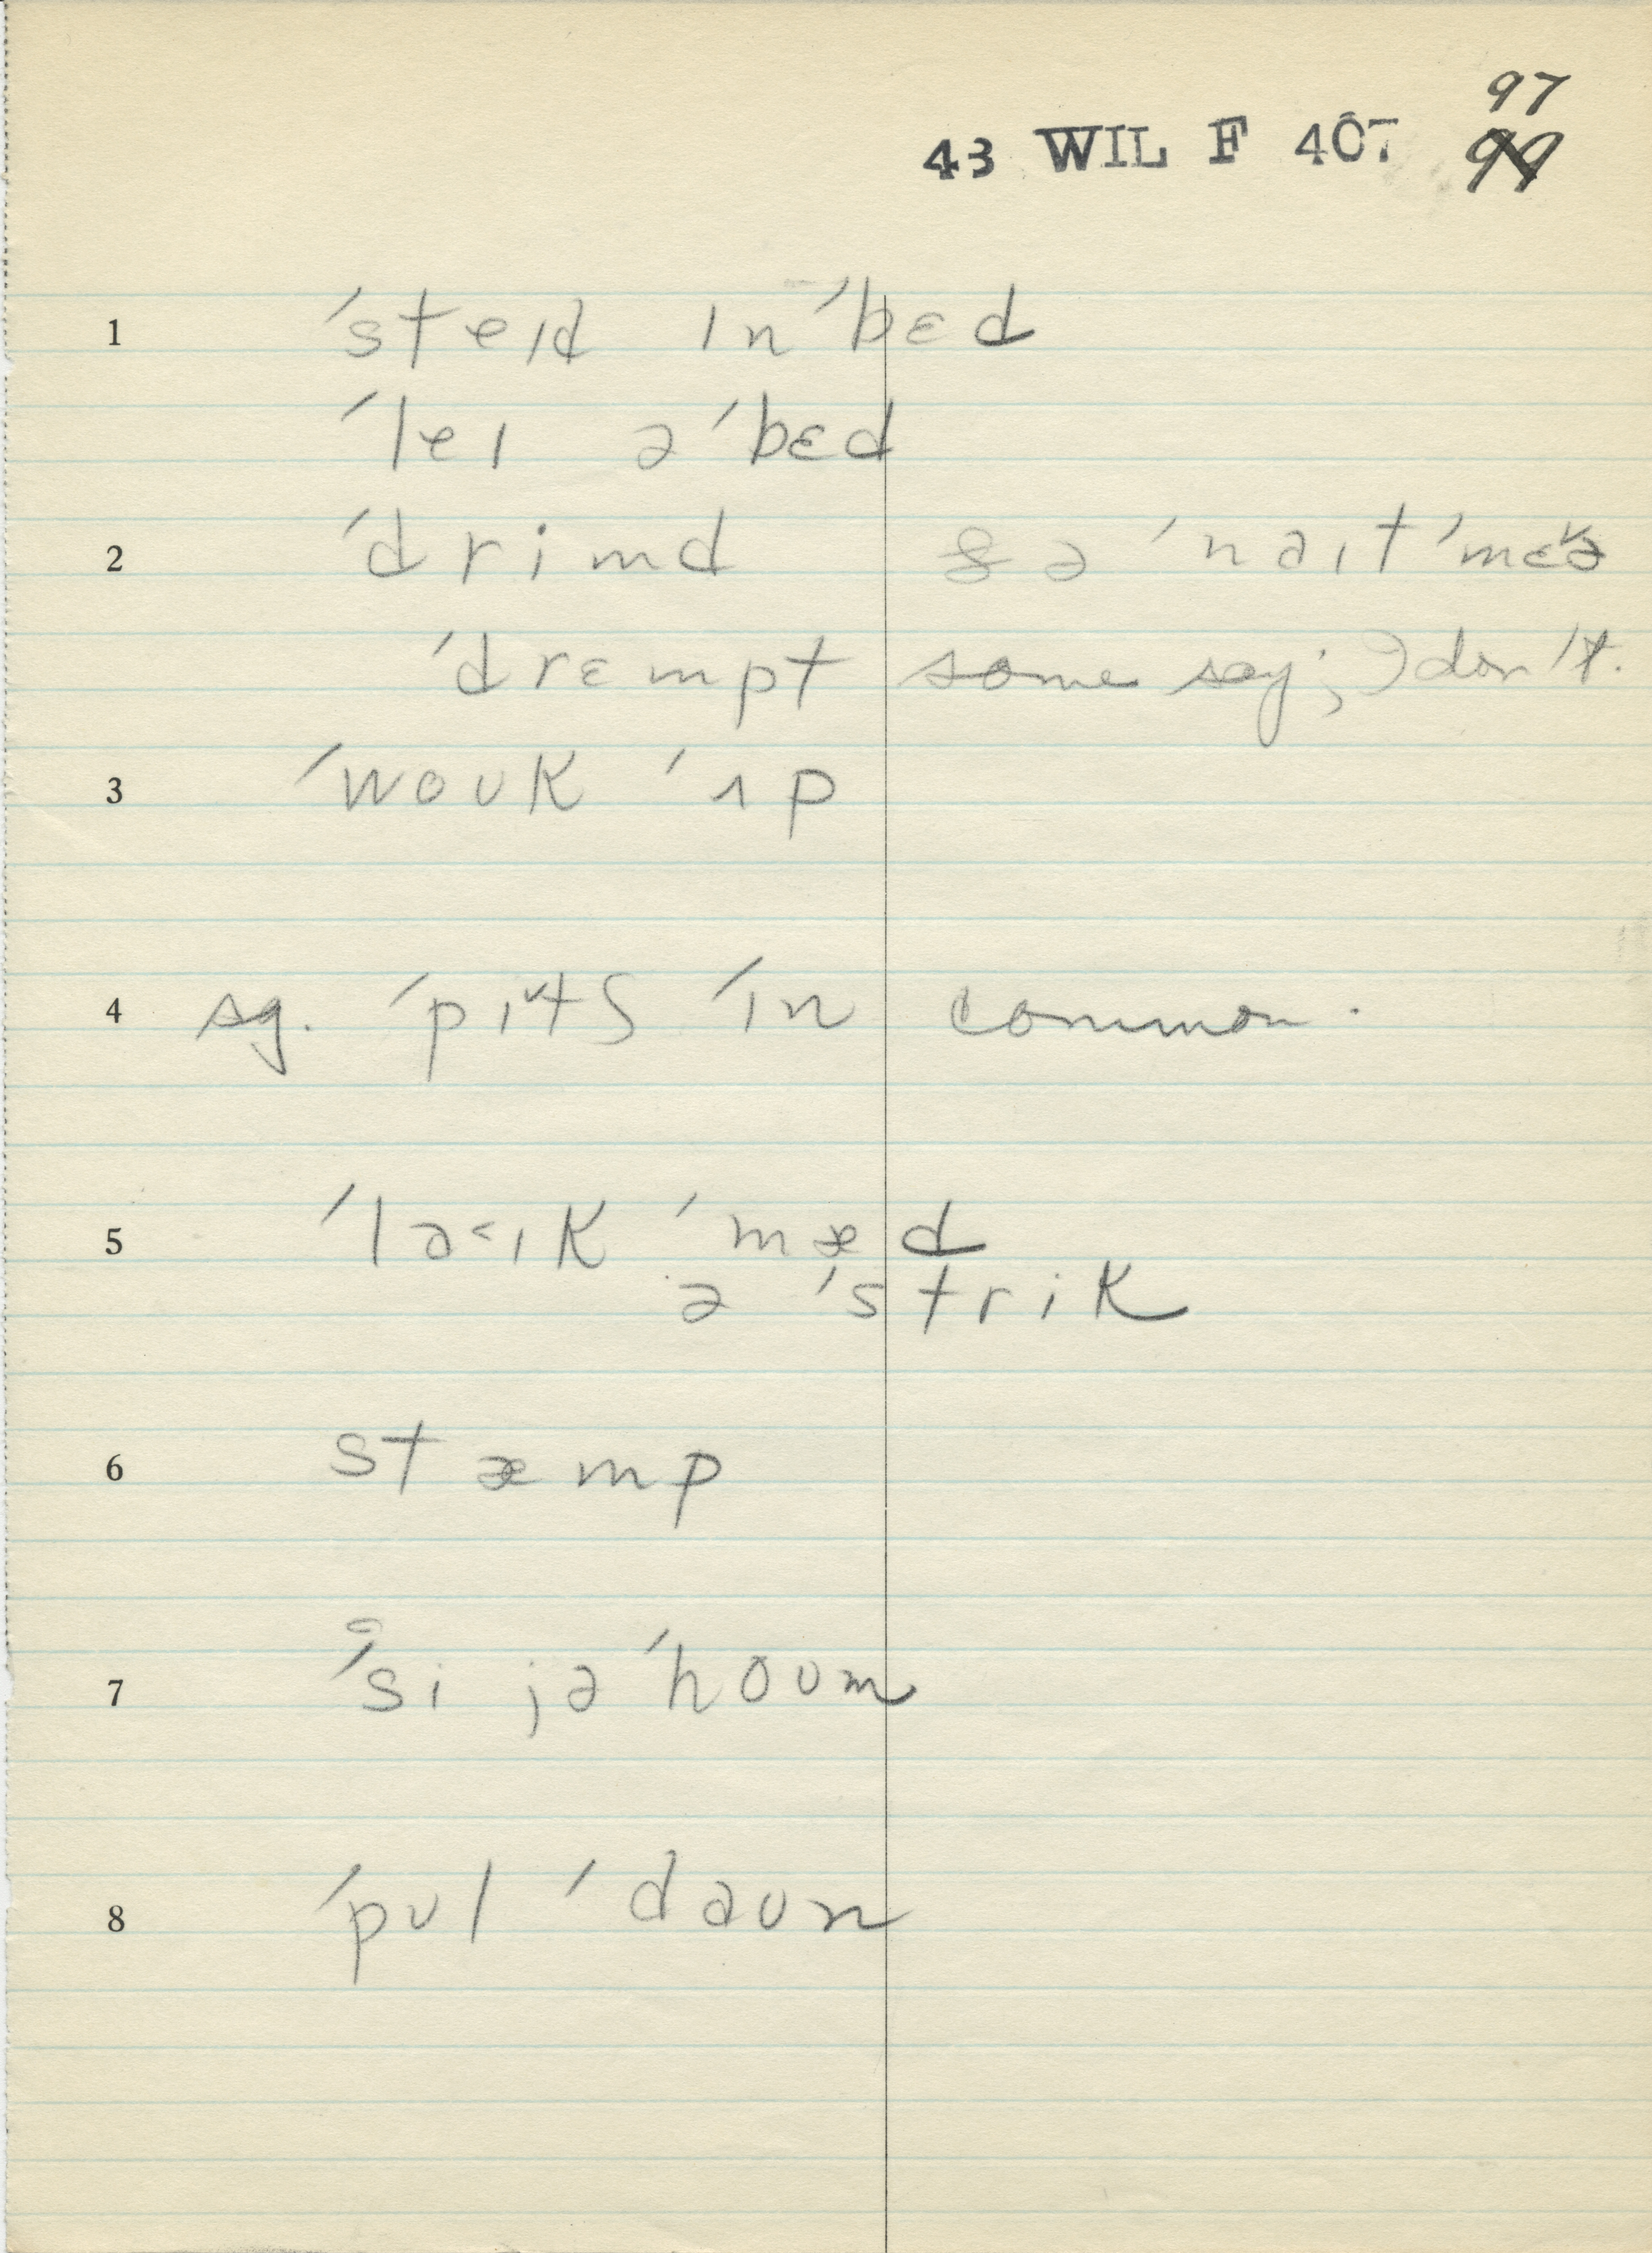 97
43 WIL F 407 99
1 ′steɪd ɪn ′bɛd
′leɪ ə ′bɛd
2 ′drimd & ə ′nəɪt ′mɛɚ
′drɛmpt some say; I don't.
3 ′woʊk ′ʌp
4 sg. ′pɪˇtʃ ′ɪn common.
5 ′lə<ɪk ′mæd
ə ′strik
6 stæmp
7 ′si jə ′hoʊm
8 ′pʊl ′dəʊn